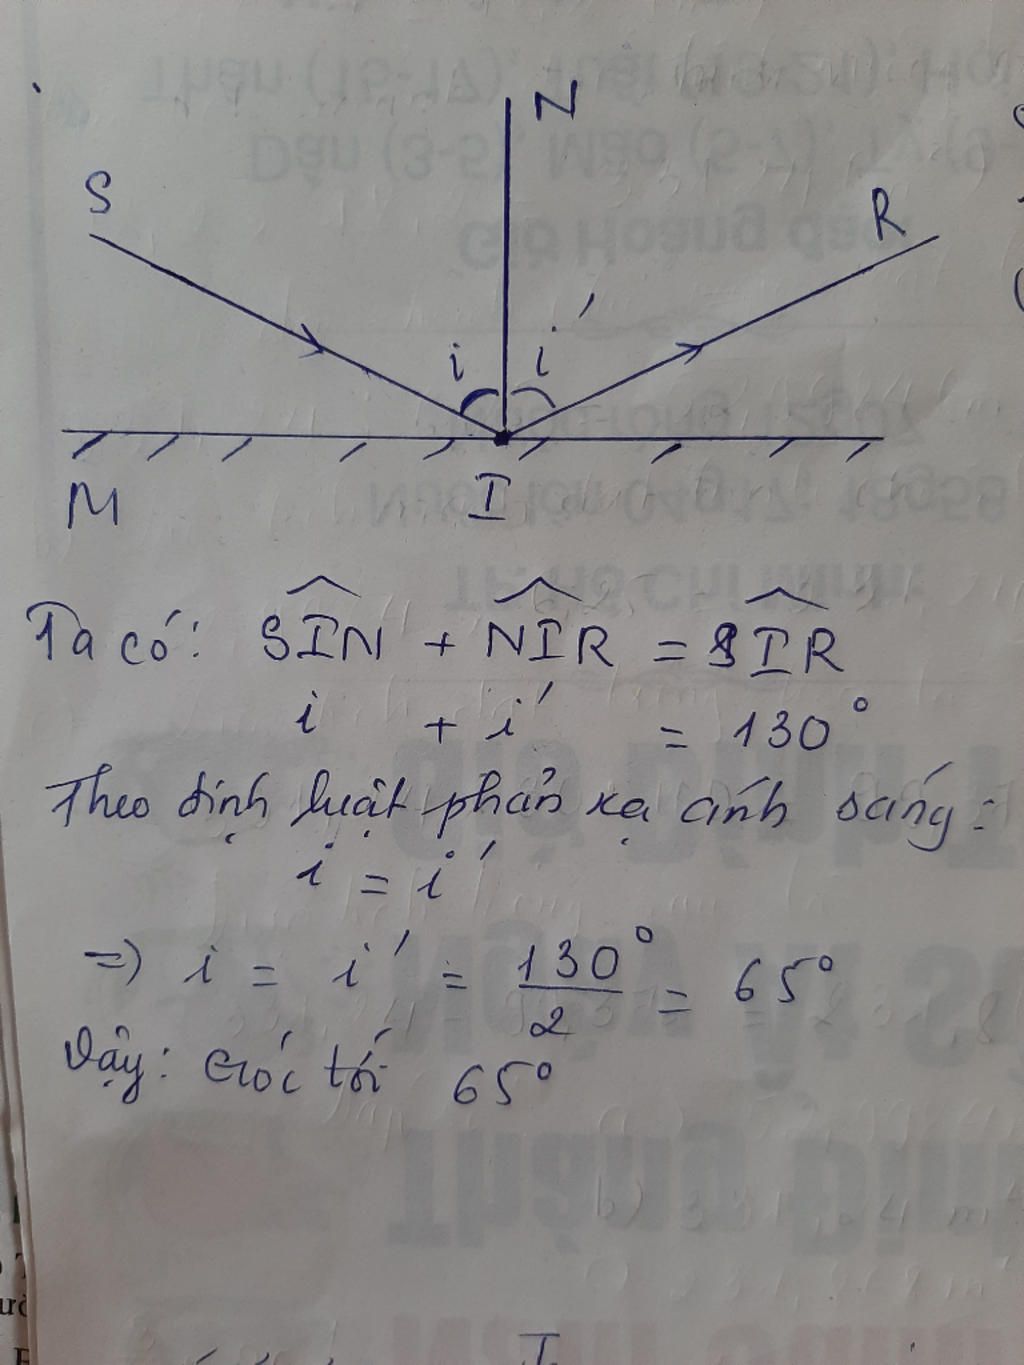 N
S
R
i i'
M
I
Ta có: SIN + NIR = SIR
i + i' = 130°
Theo định luật phản xạ ánh sáng:
i = i'
=> i = i' = 130°/2 = 65°
Vậy: Góc tới 65°